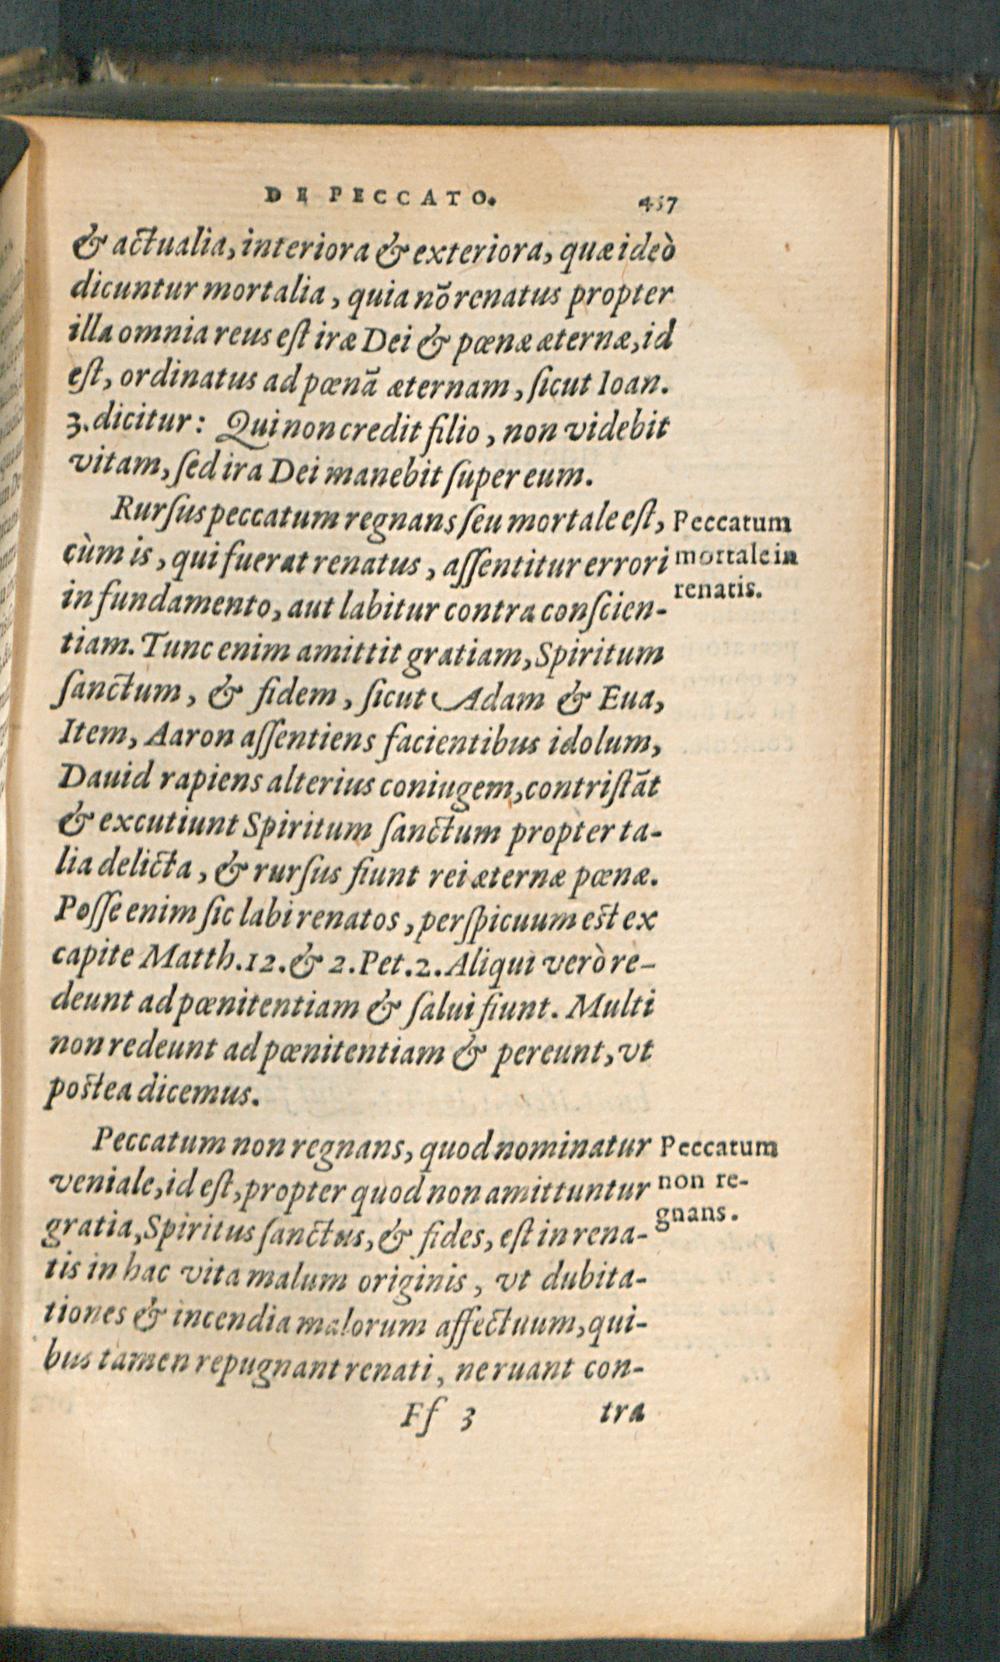 DE PECCATO. 457
& actualia, interiora & exteriora, quæ ideò
dicuntur mortalia, quia nõ renatus propter
illa omnia reus eſt iræ Dei & pœnæ æternæ, id
eſt, ordinatus ad pœnã æternam, ſicut Ioan.
3. dicitur: Qui non credit filio, non videbit
vitam, ſed ira Dei manebit ſuper eum.
Rurſus peccatum regnans ſeu mortale eſt,
Peccatum
cùm is, qui fuerat renatus, aſſentitur errori
mortale in
in fundamento, aut labitur contra conſcien-
renatis.
tiam. Tunc enim amittit gratiam, Spiritum
ſanctum, & fidem, ſicut Adam & Eua,
Item, Aaron aſſentiens facientibus idolum,
Dauid rapiens alterius coniugem, contriſtãt
& excutiunt Spiritum ſanctum propter ta-
lia delicta, & rurſus fiunt rei æternæ pœnæ.
Poſſe enim ſic labi renatos, perſpicuum est ex
capite Matth. 12. & 2. Pet. 2. Aliqui verò re-
deunt ad pœnitentiam & ſalui fiunt. Multi
non redeunt ad pœnitentiam & pereunt, vt
postea dicemus.
Peccatum non regnans, quod nominatur
Peccatum
veniale, id eſt, propter quod non amittuntur
non re-
gratia, Spiritus ſanctus, & fides, eſt in rena-
gnans.
tis in hac vita malum originis, vt dubita-
tiones & incendia malorum affectuum, qui-
bus tamen repugnant renati, ne ruant con-
Ff 3 tra